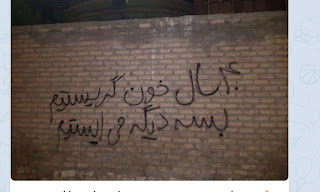 ۴۰سال خون گریستیم
بسه دیگه می ایستیم